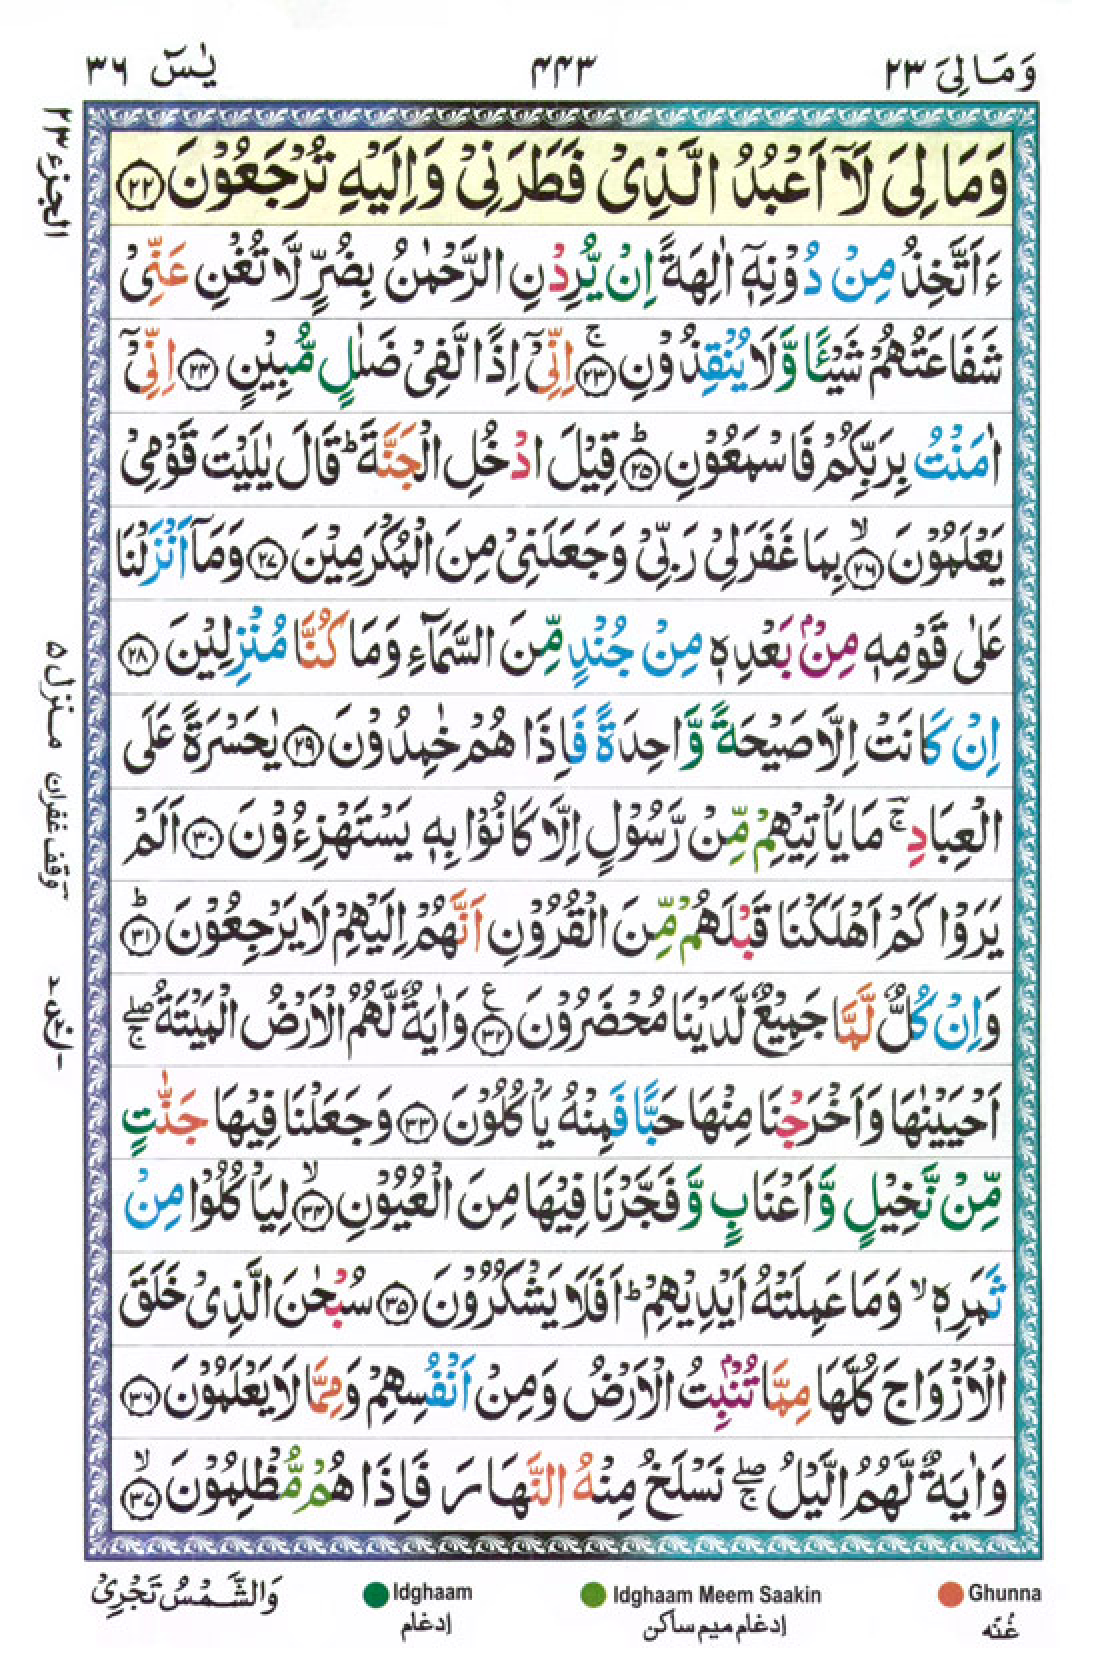 وَمَالِیَ ۲۳
۴۴۳
یٰسٓ ۳۶
الجزء ۲۳
وَمَا لِیَ لَاۤ اَعْبُدُ الَّذِیْ فَطَرَنِیْ وَاِلَیْهِ تُرْجَعُوْنَ ۲۲
ءَاَتَّخِذُ مِنْ دُوْنِهٖۤ اٰلِهَةً اِنْ یُّرِدْنِ الرَّحْمٰنُ بِضُرٍّ لَّا تُغْنِ عَنِّیْ
شَفَاعَتُهُمْ شَیْـًٔا وَّلَا یُنْقِذُوْنِ ۚ ۲۳ اِنِّیْۤ اِذًا لَّفِیْ ضَلٰلٍ مُّبِیْنٍ ۲۴ اِنِّیْۤ
اٰمَنْتُ بِرَبِّكُمْ فَاسْمَعُوْنِ ؕ ۲۵ قِیْلَ ادْخُلِ الْجَنَّةَ ؕ قَالَ یٰلَیْتَ قَوْمِیْ
یَعْلَمُوْنَ ۙ ۲۶ بِمَا غَفَرَلِیْ رَبِّیْ وَجَعَلَنِیْ مِنَ الْمُكْرَمِیْنَ ۲۷ وَمَاۤ اَنْزَلْنَا
عَلٰی قَوْمِهٖ مِنْۢ بَعْدِهٖ مِنْ جُنْدٍ مِّنَ السَّمَآءِ وَمَا كُنَّا مُنْزِلِیْنَ ۲۸
اِنْ كَانَتْ اِلَّا صَیْحَةً وَّاحِدَةً فَاِذَا هُمْ خٰمِدُوْنَ ۲۹ یٰحَسْرَةً عَلَی
الْعِبَادِ ۚؔ مَا یَاْتِیْهِمْ مِّنْ رَّسُوْلٍ اِلَّا كَانُوْا بِهٖ یَسْتَهْزِءُوْنَ ۳۰ اَلَمْ
یَرَوْا كَمْ اَهْلَكْنَا قَبْلَهُمْ مِّنَ الْقُرُوْنِ اَنَّهُمْ اِلَیْهِمْ لَا یَرْجِعُوْنَ ؕ ۳۱
وَاِنْ كُلٌّ لَّمَّا جَمِیْعٌ لَّدَیْنَا مُحْضَرُوْنَ ۳۲ ع وَاٰیَةٌ لَّهُمُ الْاَرْضُ الْمَیْتَةُ ۖۚ
اَحْیَیْنٰهَا وَاَخْرَجْنَا مِنْهَا حَبًّا فَمِنْهُ یَاْكُلُوْنَ ۳۳ وَجَعَلْنَا فِیْهَا جَنّٰتٍ
مِّنْ نَّخِیْلٍ وَّاَعْنَابٍ وَّفَجَّرْنَا فِیْهَا مِنَ الْعُیُوْنِ ۙ ۳۴ لِیَاْكُلُوْا مِنْ
ثَمَرِهٖ ۙ وَمَا عَمِلَتْهُ اَیْدِیْهِمْ ؕ اَفَلَا یَشْكُرُوْنَ ۳۵ سُبْحٰنَ الَّذِیْ خَلَقَ
الْاَزْوَاجَ كُلَّهَا مِمَّا تُنْۢبِتُ الْاَرْضُ وَمِنْ اَنْفُسِهِمْ وَمِمَّا لَا یَعْلَمُوْنَ ۳۶
وَاٰیَةٌ لَّهُمُ الَّیْلُ ۖۚ نَسْلَخُ مِنْهُ النَّهَارَ فَاِذَا هُمْ مُّظْلِمُوْنَ ۙ ۳۷
منزل ۵
وقف غفران
Ghunna
غُنّه
Idghaam Meem Saakin
إدغام میم ساکن
Idghaam
إدغام
وَالشَّمْسُ تَجْرِیْ